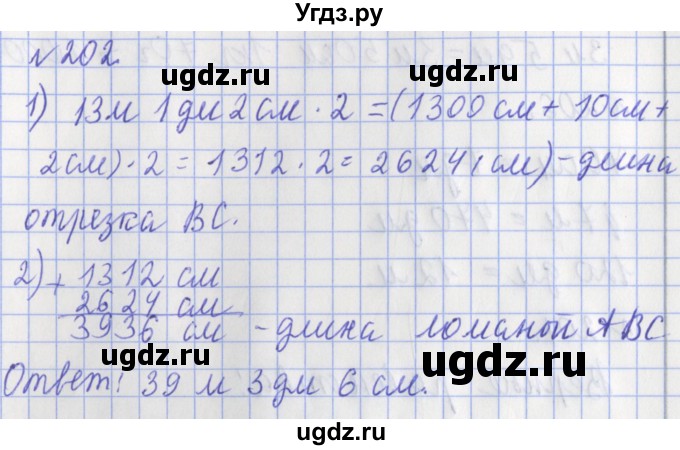 Угдз.ру
№202.
ugdz.ru ugdz.ru
1) 13м 1дм 2см · 2 = (1300 см + 10см +
2см) · 2 = 1312 · 2 = 2624 (см) - длина
ugdz.ru ugdz.ru
отрезка ВС.
2) + 1312 см
2624 см
ugdz.ru ugdz.ru
3936 см - длина ломаной АВС
Ответ: 39 м 3дм 6 см.
ugdz.ru ugdz.ru
ugdz.ru